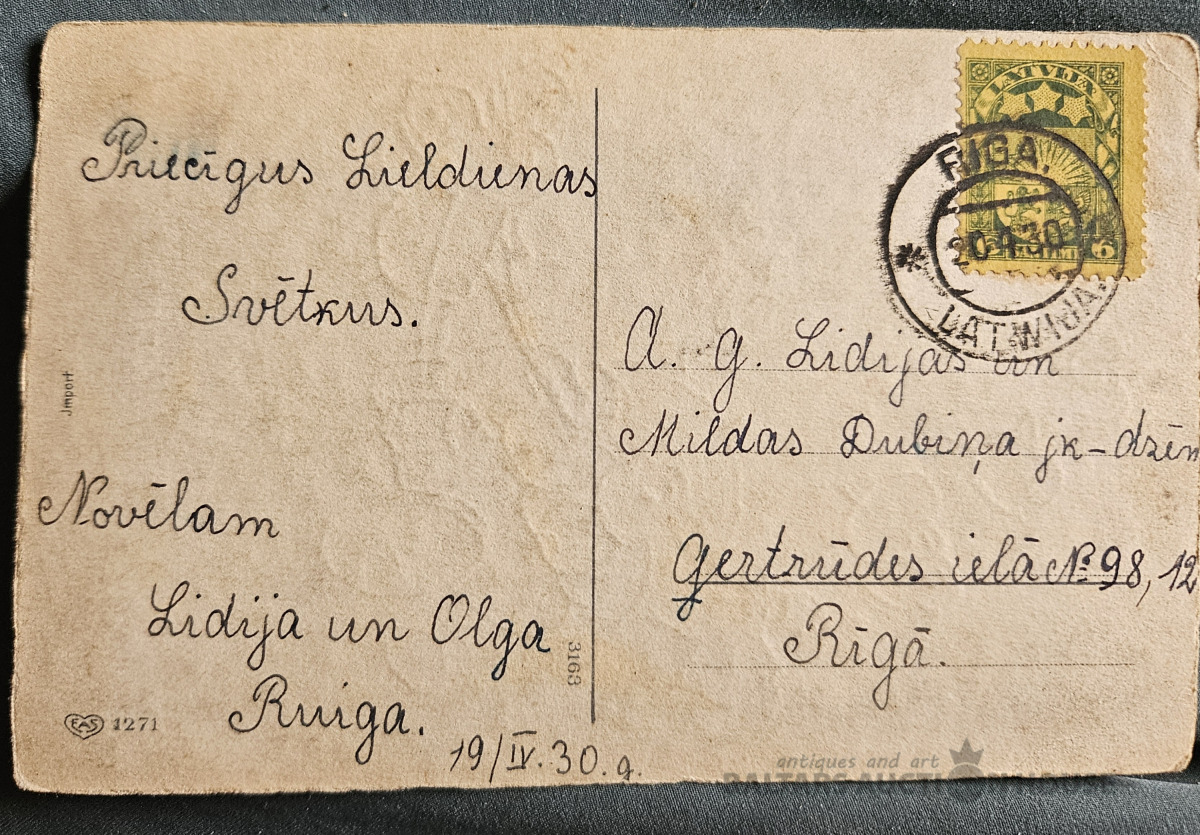 Priecīgus Lieldienas
Svētkus.
Novēlam
Lidija un Olga
Ruiga.
19/IV.30.g.
Jmport
EAS 1271
3163
LATVIJA
6
RIGA.
20.4.30
LATWIJA.
A. g. Lidijas un
Mildas Dubiņa jk-dzēm
Ģertrūdes ielā №98, 12
Rīgā.
antiques and art